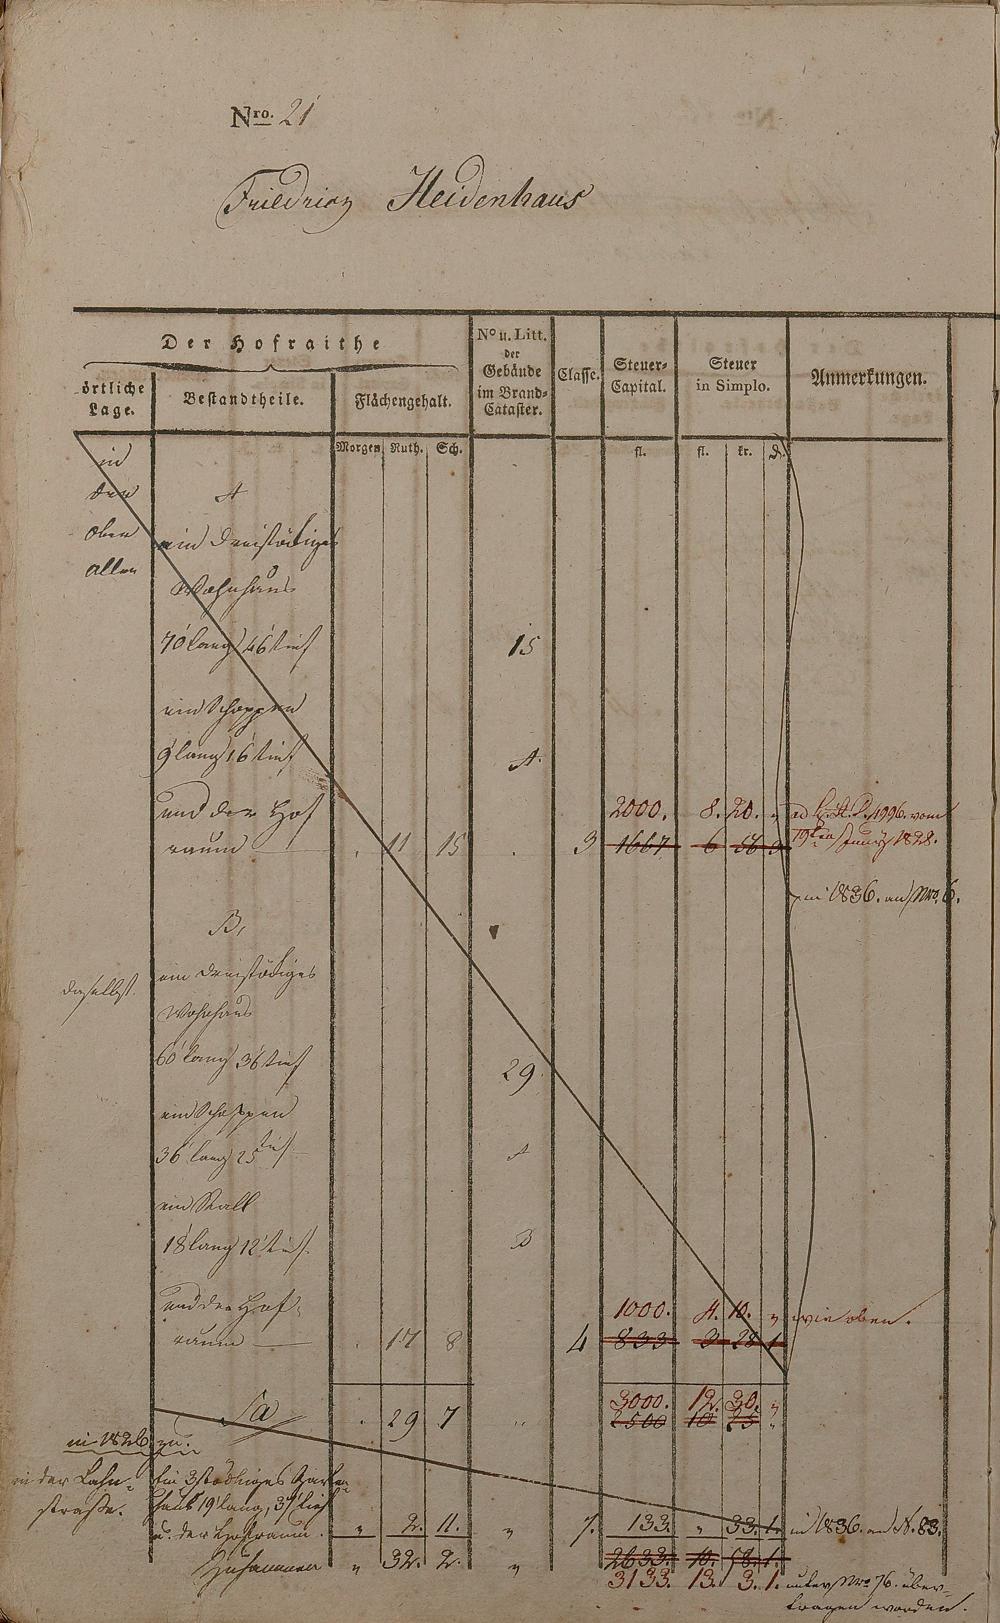 Nro. 21
Friedrich Heidenhaus
Der Hofraithe
örtliche Lage.
Bestandtheile.
Flächengehalt.
No u. Litt. der Gebäude im Brand-Cataster.
Classe.
Steuer-Capital.
Steuer in Simplo.
Anmerkungen.
Morgen Ruth. Sch. fl. fl. kr. d.
in
der A
oben ein dreistöckiges
allee
Wohnhaus
70' lang 46' tief 15
ein Schoppen
9' lang 16' tief A.
und der Hof 2000. 8. 20. „ ad 1996. vom
raum . 11 15 . 3 1667 6 56 3 19ten Juny 1828.
in 1836. an Nro. 6.
B,
daselbst. ein dreistöckiges
Wohnhaus
60' lang 36' tief 29
ein Schoppen
36' lang 25' tief A
ein Stall
18' lang 12' tief. B
und der Hof- 1000. 4. 10. „ wie oben.
raum . 17 8 4 833 3 28 1
3000. 12. 30. „
Sa . 29 7 „ 2500 10 25 „
in 1826 zu.
in der Lahn- Ein 3stöckiges
straße. Haus 19' lang, 37' tief
u. der Hofraum. „ 2. 11. „ 7. 133. „ 33. 1. in 1836. an N. 83.
Zusammen „ 32. 2. „ 2633. 10. 58. 1.
3133. 13. 3. 1. unter Nro 76. über-
tragen worden.